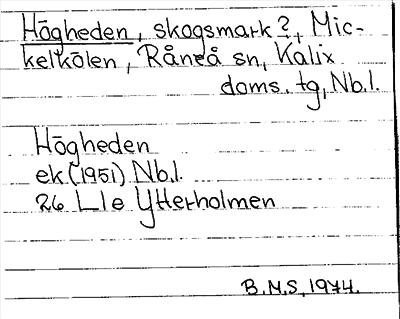 Högheden, skogsmark?, Mic-
kelkölen, Råneå sn, Kalix
doms. tg, Nb.l.
Högheden
ek (1951) Nb.l.
26 L1e Ytterholmen
B.N.S, 1974.